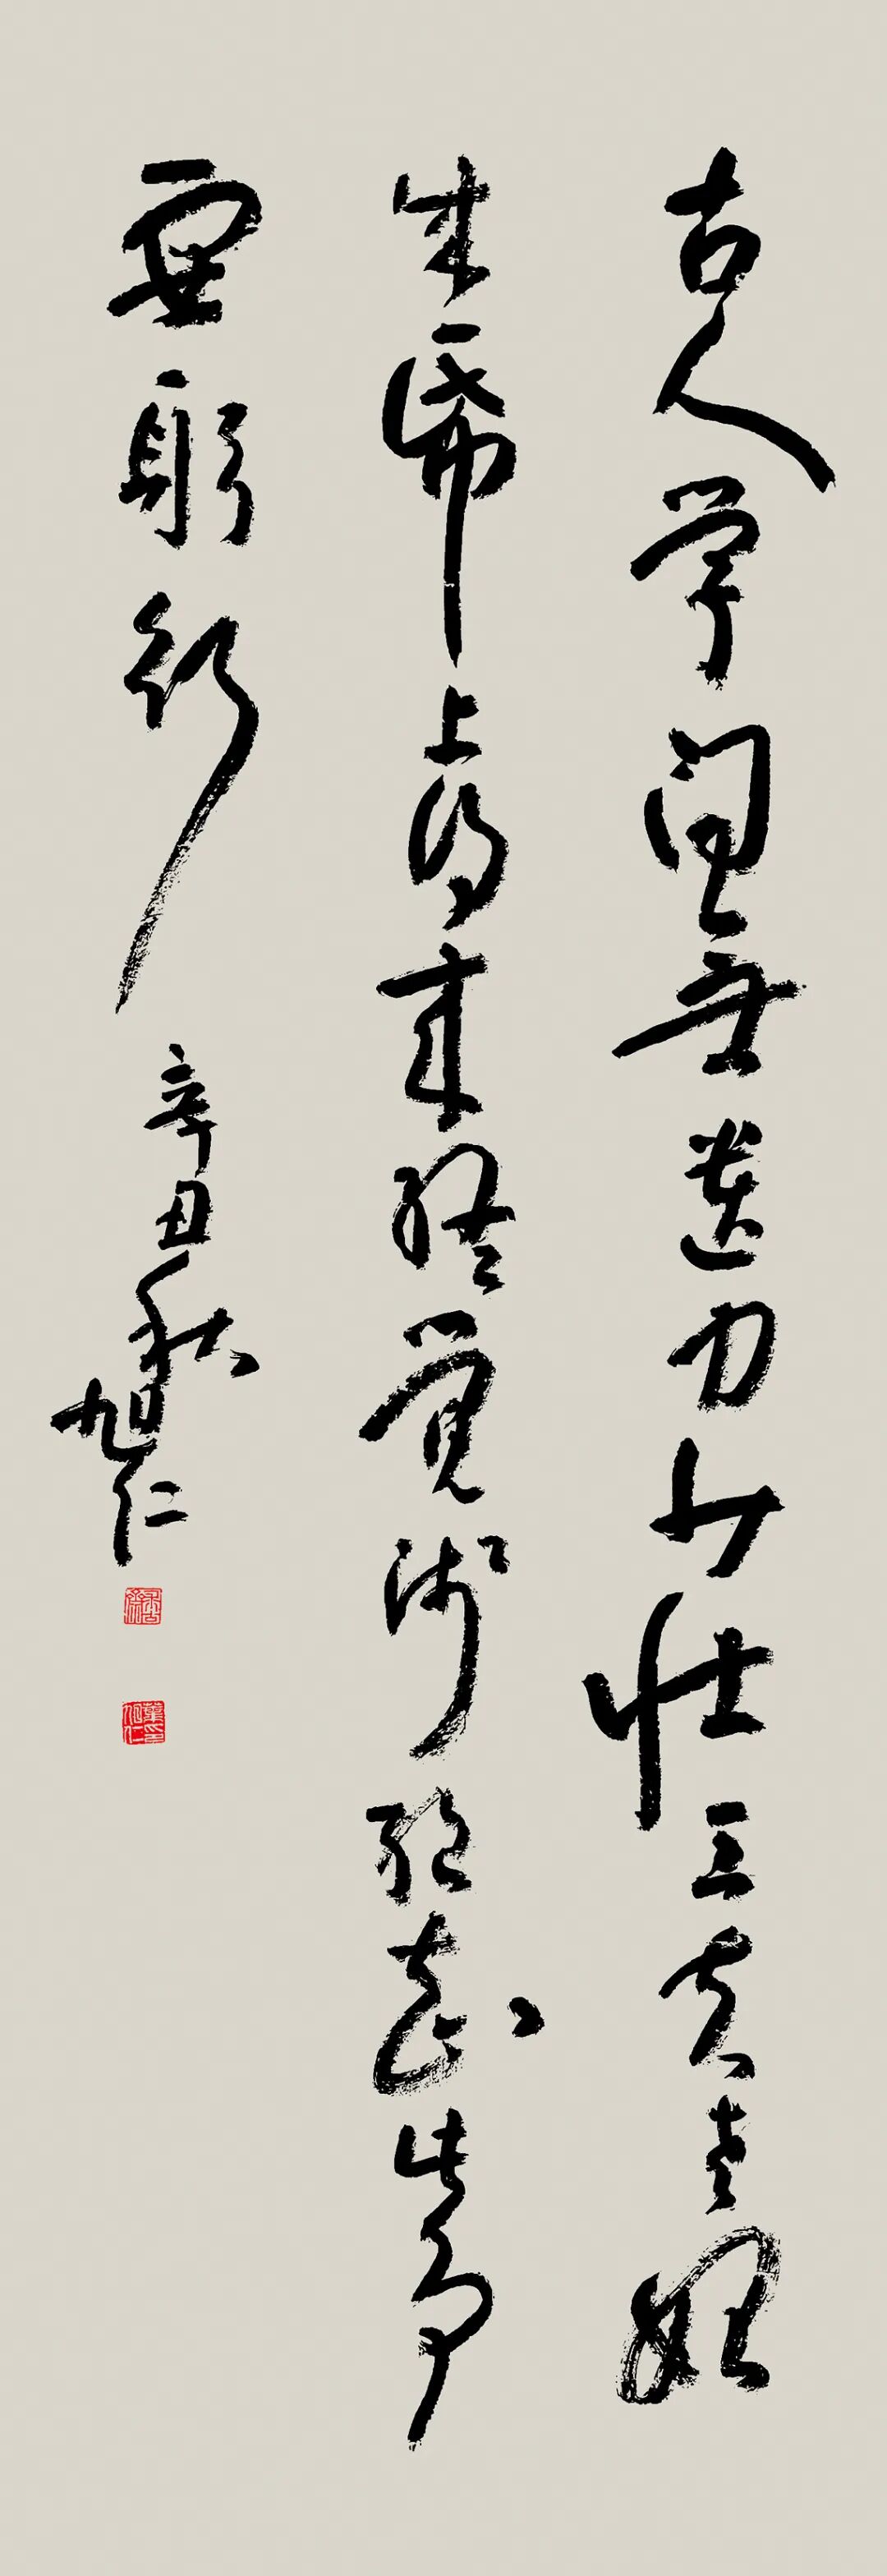 古人学问无遗力少壮工夫老始
成帋上得来终觉浅绝知此事
要躬行 辛丑秋旭仁